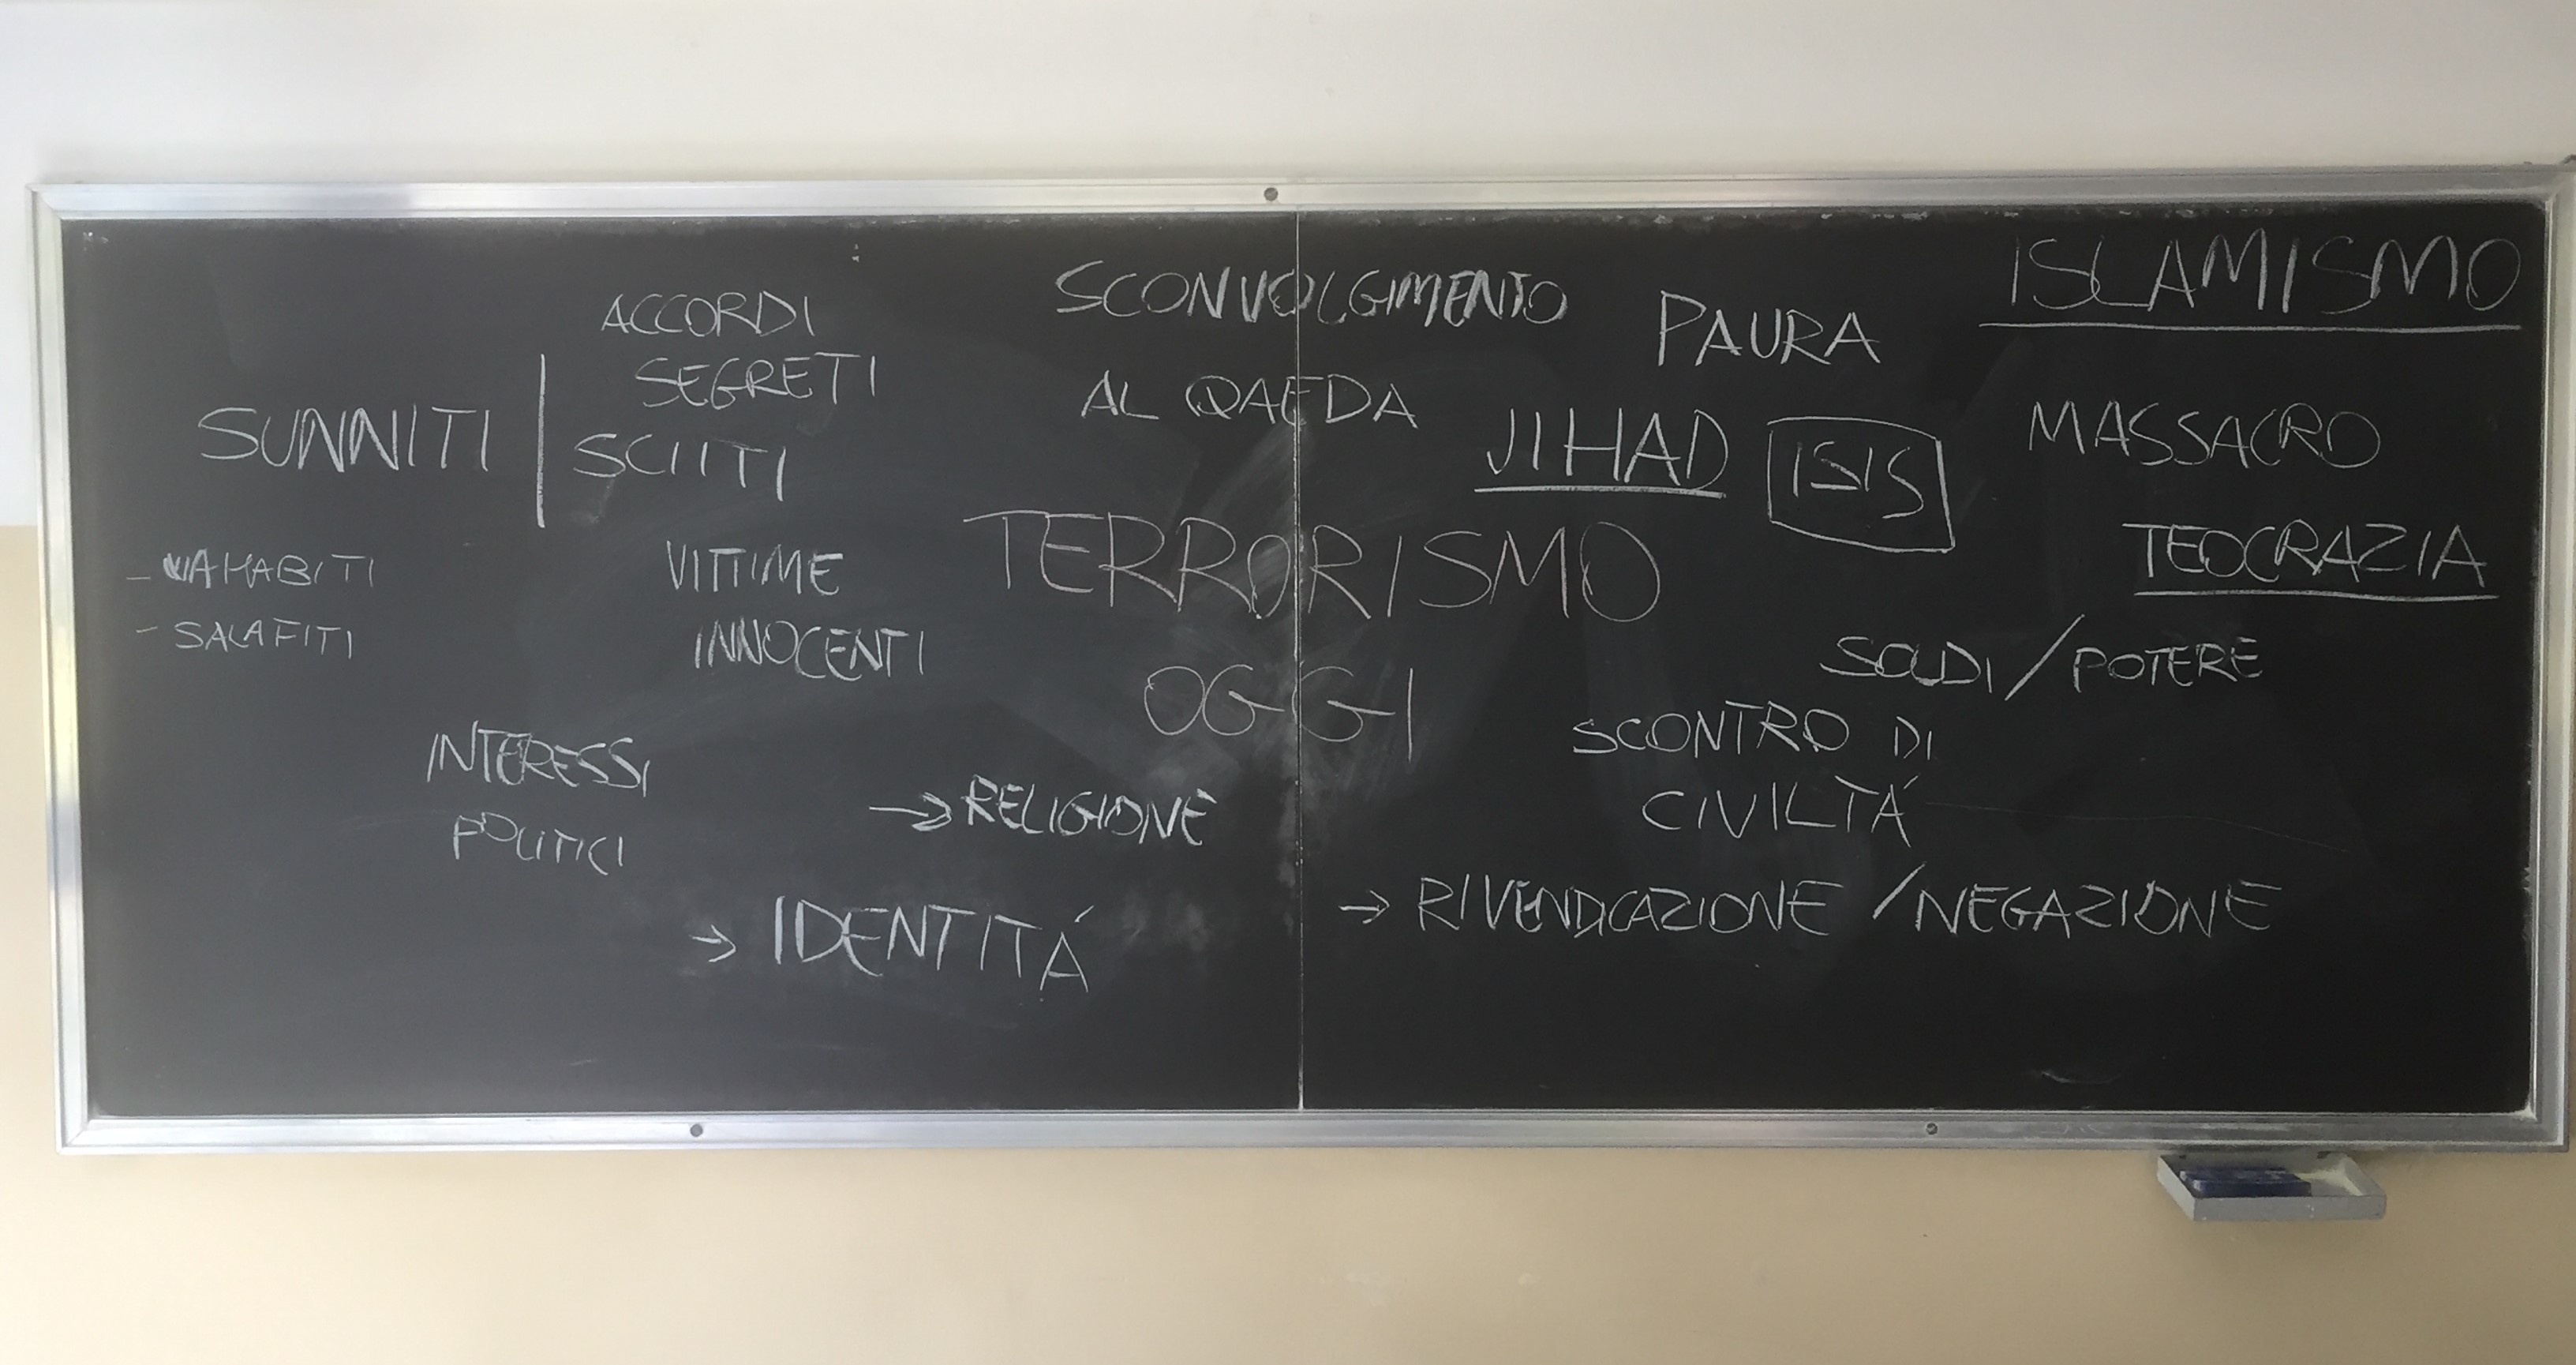 ISLAMISMO
SCONVOLGIMENTO
ACCORDI
SEGRETI
PAURA
AL QAEDA
SUNNITI | SCIITI
JIHAD
ISIS
MASSACRO
- WAHABITI
- SALAFITI
VITTIME
INNOCENTI
TERRORISMO
OGGI
TEOCRAZIA
SOLDI / POTERE
SCONTRO DI
CIVILTÁ
INTERESSI
POLITICI
→ RELIGIONE
→ IDENTITÁ
→ RIVENDICAZIONE / NEGAZIONE